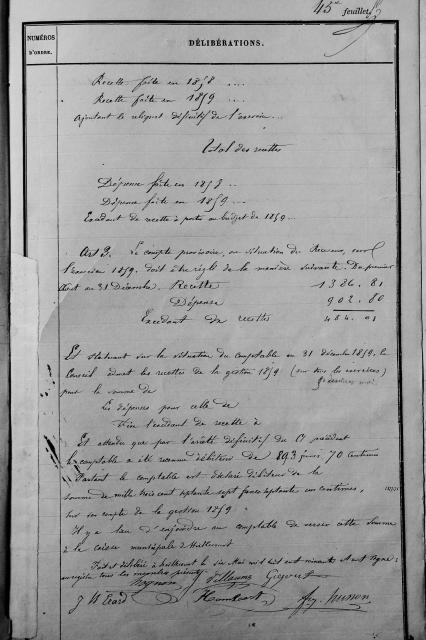 45e feuillet
NUMÉROS
D'ORDRE.
DÉLIBÉRATIONS.
Recette faite en 1858 ....
Recette faite en 1859 ....
Ajoutant le reliquat définitif de l'exercice ...
Total des recettes
Dépense faite en 1858 ..
Dépense faite en 1859 ...
Excédant de recette à porter au budget de 1859 ...
Art 3. Le compte provisoire, ou situation du Receveur, sur
l'exercice 1859, doit être réglé de la manière suivante. Du premier
au 31 Décembre. Recette 1386. 81
Dépense 902. 80
Excédant de recettes 484. 01
Et statuant sur la situation du comptable au 31 décembre 1859, le
Conseil admet les recettes de la gestion 1859 (sur tous les exercices)
pour la somme de
Les dépenses pour celle de
l'excédant de recette à
Et attendu que par l'arrêté définitif du
le comptable a été reconnu débiteur de 893 francs 70 centimes
Partant le comptable est déclaré débiteur de la
somme de mille trois cent septante sept francs septante un centimes,
sur son compte de la gestion 1859.
Il y a lieu d'enjoindre au comptable de verser cette somme
à la caisse municipale d'
Fait et délibéré à le six Mai mil huit cent soixante
tous les membres présents
Husson